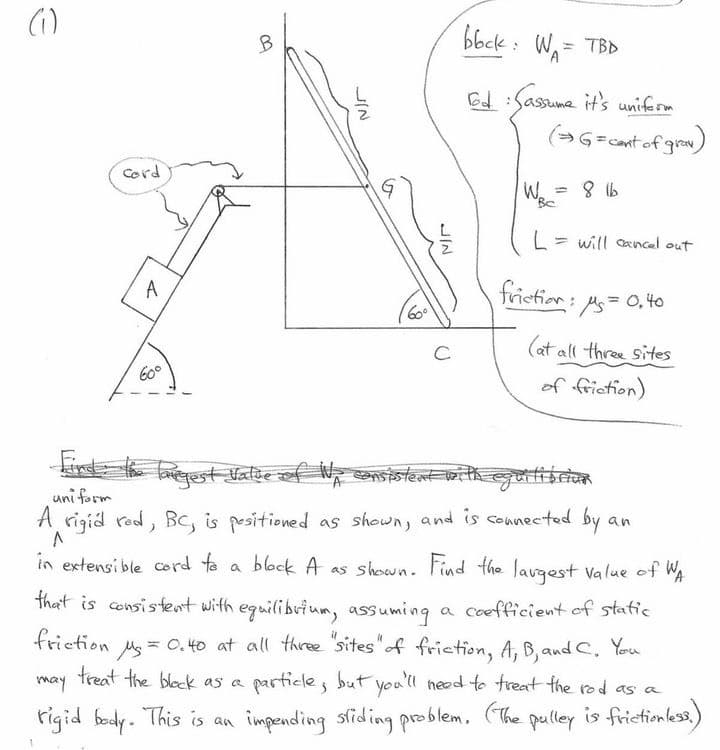 (i)
B
block: W_A = TBD
L/2
rod: { assume it's uniform
(⇒ G = cent of grav)
cord
G
W_BC = 8 lb
L/2
L = will cancel out
A
60°
friction: μ_s = 0.40
C
(at all three sites
60°
of friction)
Find: the largest value of W_A consistent with equilibrium
uniform
A ^ rigid rod, BC, is positioned as shown, and is connected by an
in extensible cord to a block A as shown. Find the largest value of W_A
that is consistent with equilibrium, assuming a coefficient of static
friction μ_s = 0.40 at all three "sites" of friction, A, B, and C. You
may treat the block as a particle, but you'll need to treat the rod as a
rigid body. This is an impending sliding problem. (The pulley is frictionless.)